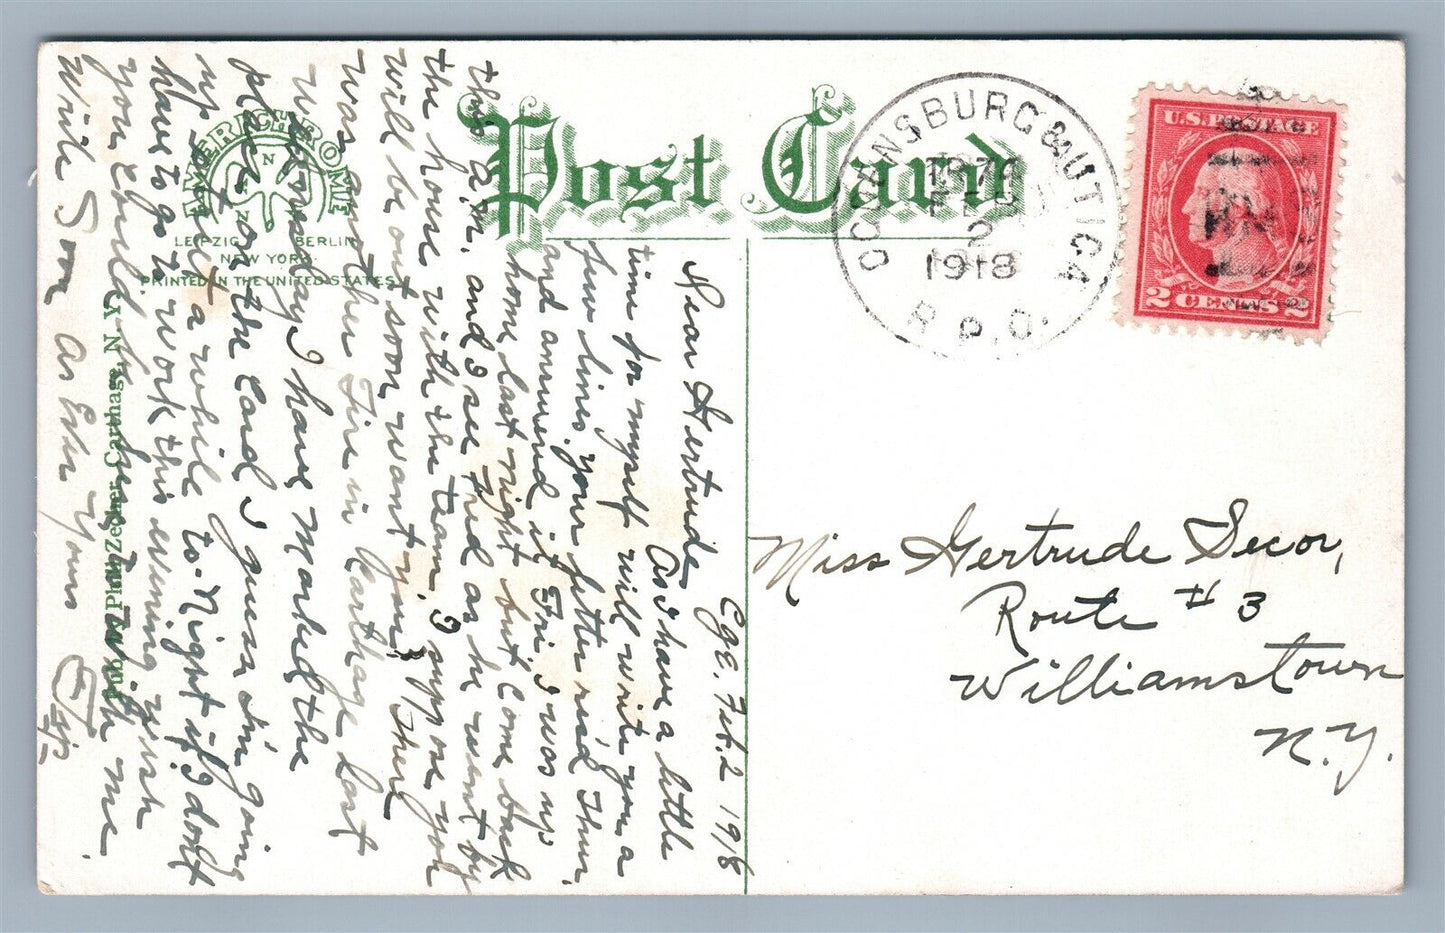 Post Card
AVERICHROME
N Z
LEIPZIG BERLIN
NEW YORK
PRINTED IN THE UNITED STATES
Pub. by Phil Zegher, Carthage, N. Y.
OGDENSBURG & UTICA
FEB
2
1918
R.P.O.
U.S. POSTAGE
2 CENTS 2
Miss Gertrude Secor,
Route # 3
Williamstown
N.Y.
Feb. 2 1918
Dear Gertrude
As I have a little
time for myself will write you a
few lines. your letter rec'd Thur.
and answered it Fri. I was up
home last night but come back
this a.m. and I see Fred as he went by
the house with the team, I suppose you
will be out soon want you? There
was another Fire in Carthage last
Wednesday I have Marked the
place on the Card I guess I'm going
up st a while to-Night if I don't
have to go to work this evening wish
you could be with me.
Write Soon as Ever Yours